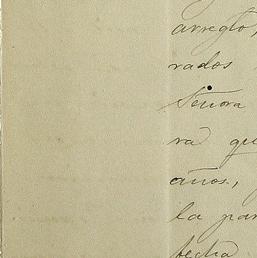 arreglo,
rados
Señora
ra que
años,
la par
fecha